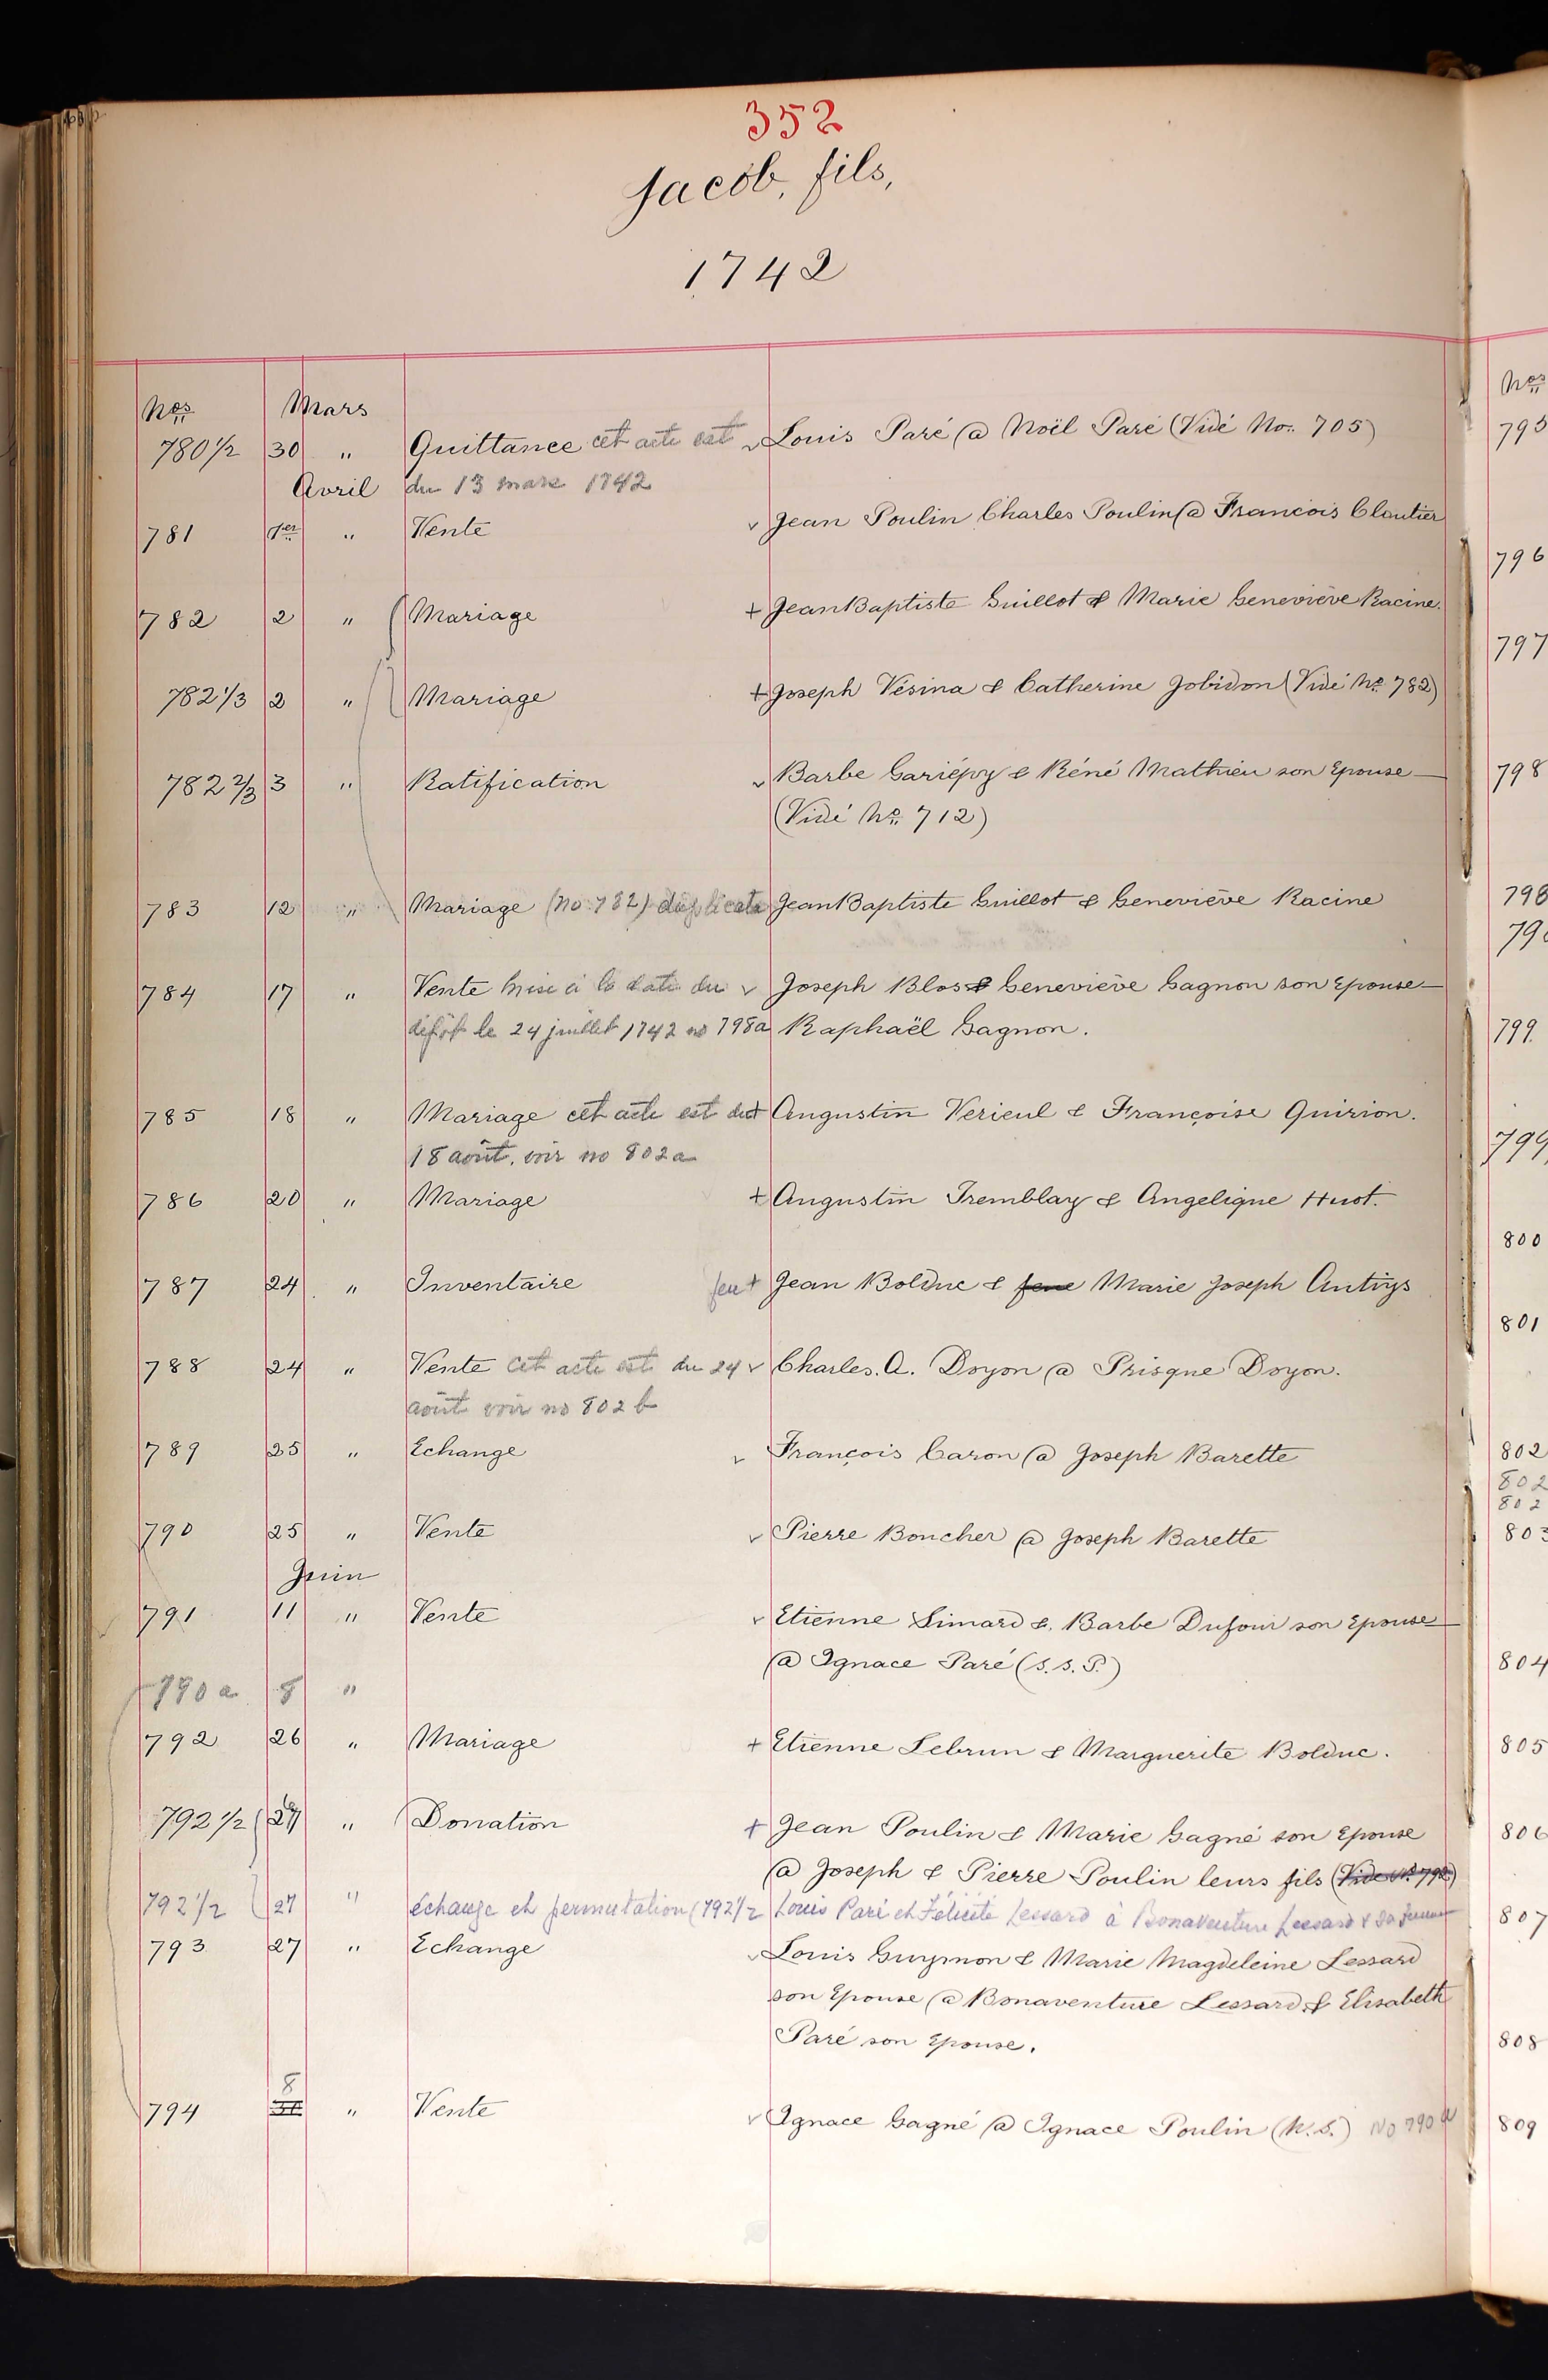 352
Jacob, fils,
1742
Nos Mars
780 1/2 30 " Quittance cet acte est v Louis Paré @ Noël Paré (Vidé No. 705)
Avril du 13 mars 1742
781 1er " Vente v Jean Poulin Charles Poulin @ Francois Cloutier
782 2 " Mariage + Jean Baptiste Guillot & Marie Geneviève Racine.
782 1/3 2 " Mariage + Joseph Vésina & Catherine Jobidon (Vidé No. 782)
782 2/3 3 " Ratification v Barbe Gariépy & Réné Mathieu son Epouse
(Vidé No. 712)
783 12 " Mariage (no 782) duplicata Jean Baptiste Guillot & Geneviève Racine
784 17 " Vente mise à la date du v Joseph Blos & Geneviève Gagnon son Epouse
dépôt le 24 juillet 1742 no 798a Raphaël Gagnon.
785 18 " Mariage cet acte est du + Augustin Verieul & Françoise Quirion.
18 août. voir no 802a
786 20 " Mariage + Augustin Tremblay & Angelique Huot.
787 24 " Inventaire feu + Jean Bolduc & feue Marie Joseph Antiys
788 24 " Vente cet acte est du 24 v Charles. A. Doyon @ Prisque Doyon.
août voir no 802 b
789 25 " Echange v François Caron @ Joseph Barette
790 25 " Vente v Pierre Boucher @ Joseph Barette
Juin
791 11 " Vente v Etienne Simard &. Barbe Dufour son Epouse
@ Ignace Paré (S.S.P.)
790 a 8 "
792 26 " Mariage + Etienne Lebrun & Marguerite Bolduc.
792 1/2 27 " Donation + Jean Poulin & Marie Gagné son Epouse
@ Joseph & Pierre Poulin leurs fils (Vide No. 792)
792 1/2 27 " échange et permutation (792 1/2 Louis Paré et Félicité Lessard à Bonaventure Lessard & sa femme
793 27 " Echange v Louis Guymon & Marie Magdeleine Lessard
son Epouse @ Bonaventure Lessard & Elisabeth
Paré son Epouse.
8
794 30 " Vente v Ignace Gagné @ Ignace Poulin (N.S.) No 790 a
Nos
795
796
797
798
798
799
799
800
801
802
802
802
803
804
805
806
807
808
809